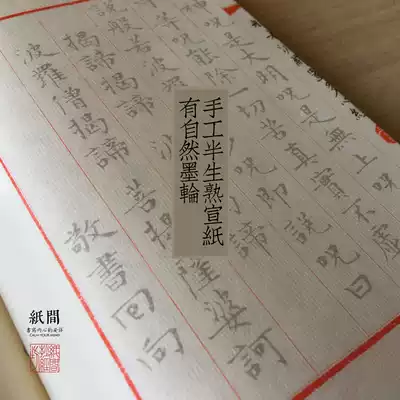 手工半生熟宣紙
有自然墨輪
神呪是大明呪是無上
呪能除一切苦真實不虛
般若波羅 即說呪曰
揭諦揭諦
波羅僧揭諦 菩提薩婆訶
敬書回向
紙間